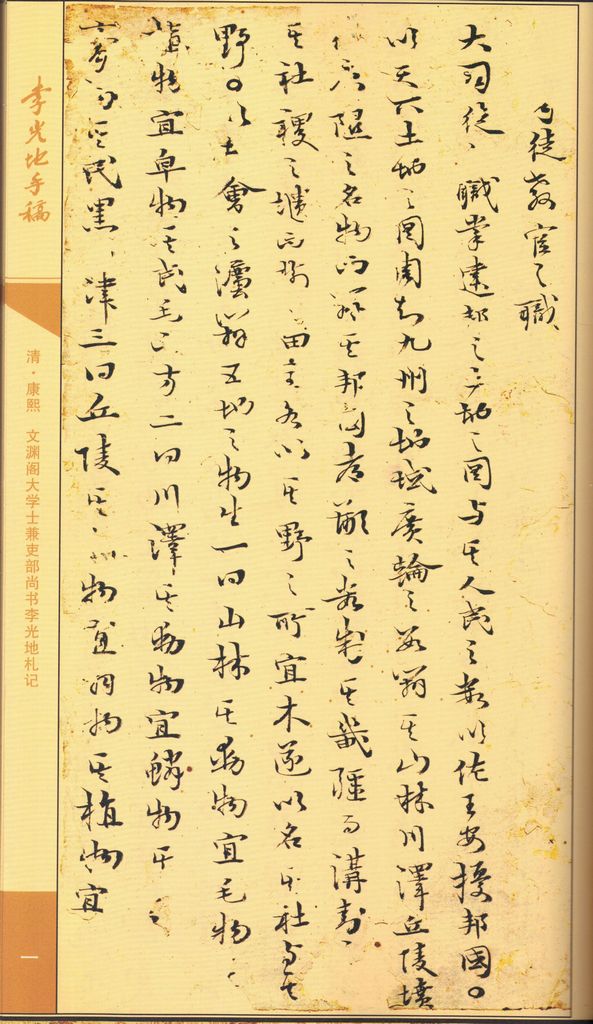 司徒教官之職
大司徒之職掌建邦之土地之圖与其人民之數以佐王安擾邦國。
以天下土地之圖周知九州之地域廣輪之數辨其山林川澤丘陵墳
衍原隰之名物而辨其邦國都鄙之數制其畿疆而溝封之
其社稷之壝而樹之田主各以其野之所宜木遂以名其社与其
野。以土會之灋辨五地之物生一曰山林其動物宜毛物其
植物宜皁物其民毛而方二曰川澤其動物宜鱗物其
膏物其民黑而津三曰丘陵其動物宜羽物其植物宜
李光地手稿
清·康熙 文渊阁大学士兼吏部尚书李光地札记
一